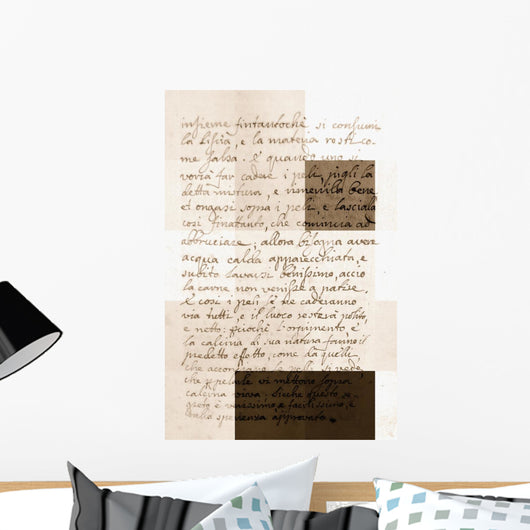 insieme fintantoche si consumi
la lisia, e la materia resti co-
me salsa. e quando uno si
vorrà far cadere i peli, pigli la
detta mistura, e rimevilla bene
et ongasi sopra i peli, e lasciala
così finatanto, che comincia ad
abbruciare; allora bisogna avere
acqua calda apparecchiata, e
subito lavarsi benissimo, acciò
la carne non venisse a patire,
e così i peli se ne caderanno
via tutti, e il luoco resterà polito,
e netto: perché l'orpimento, e
la calcina di sua natura fanno il
predetto effetto, come da quelle,
che acconciano le pelli, si vede,
che a pelarle vi mettono sopra
calcina viva: siche questo se-
greto è verissimo, e facilissimo, e
dalla sperienza approvato.